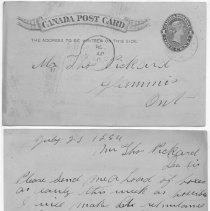 CANADA POST CARD
THE ADDRESS TO BE WRITTEN ON THIS SIDE.
Mr Thos Pickard
Glammis
Ont
July 21 1884
Mr Thos Pickard
Dr Sir
Please send me a load of
as early this week as possible
I will make